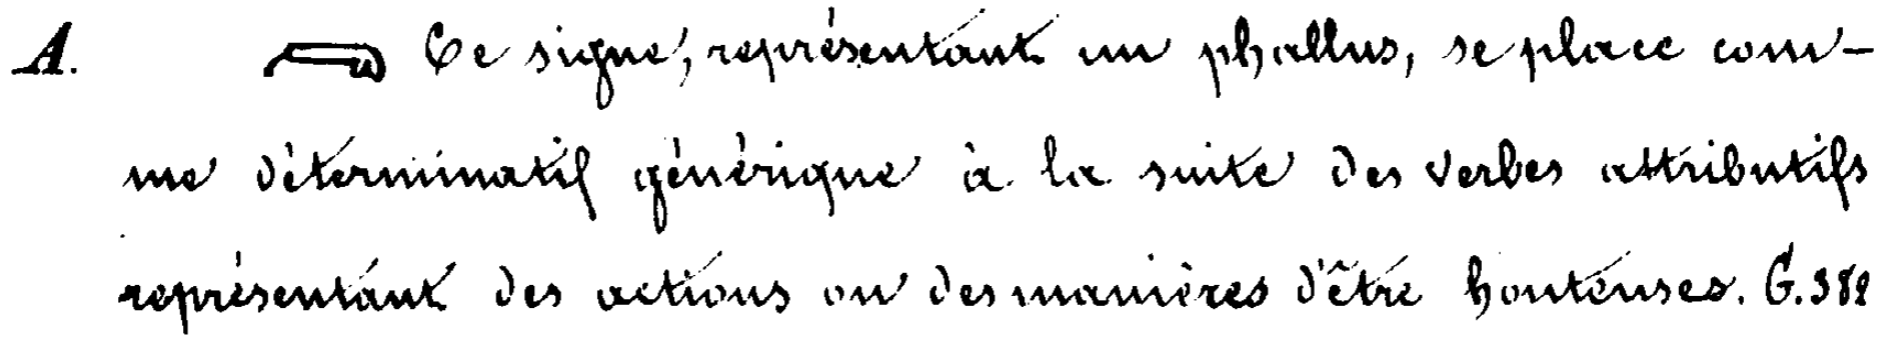 A. 𓂸 Ce signe, représentant un phallus, se place com-
me déterminatif générique à la suite des verbes attributifs
représentant des actions ou des manières d'être honteuses. G. 382